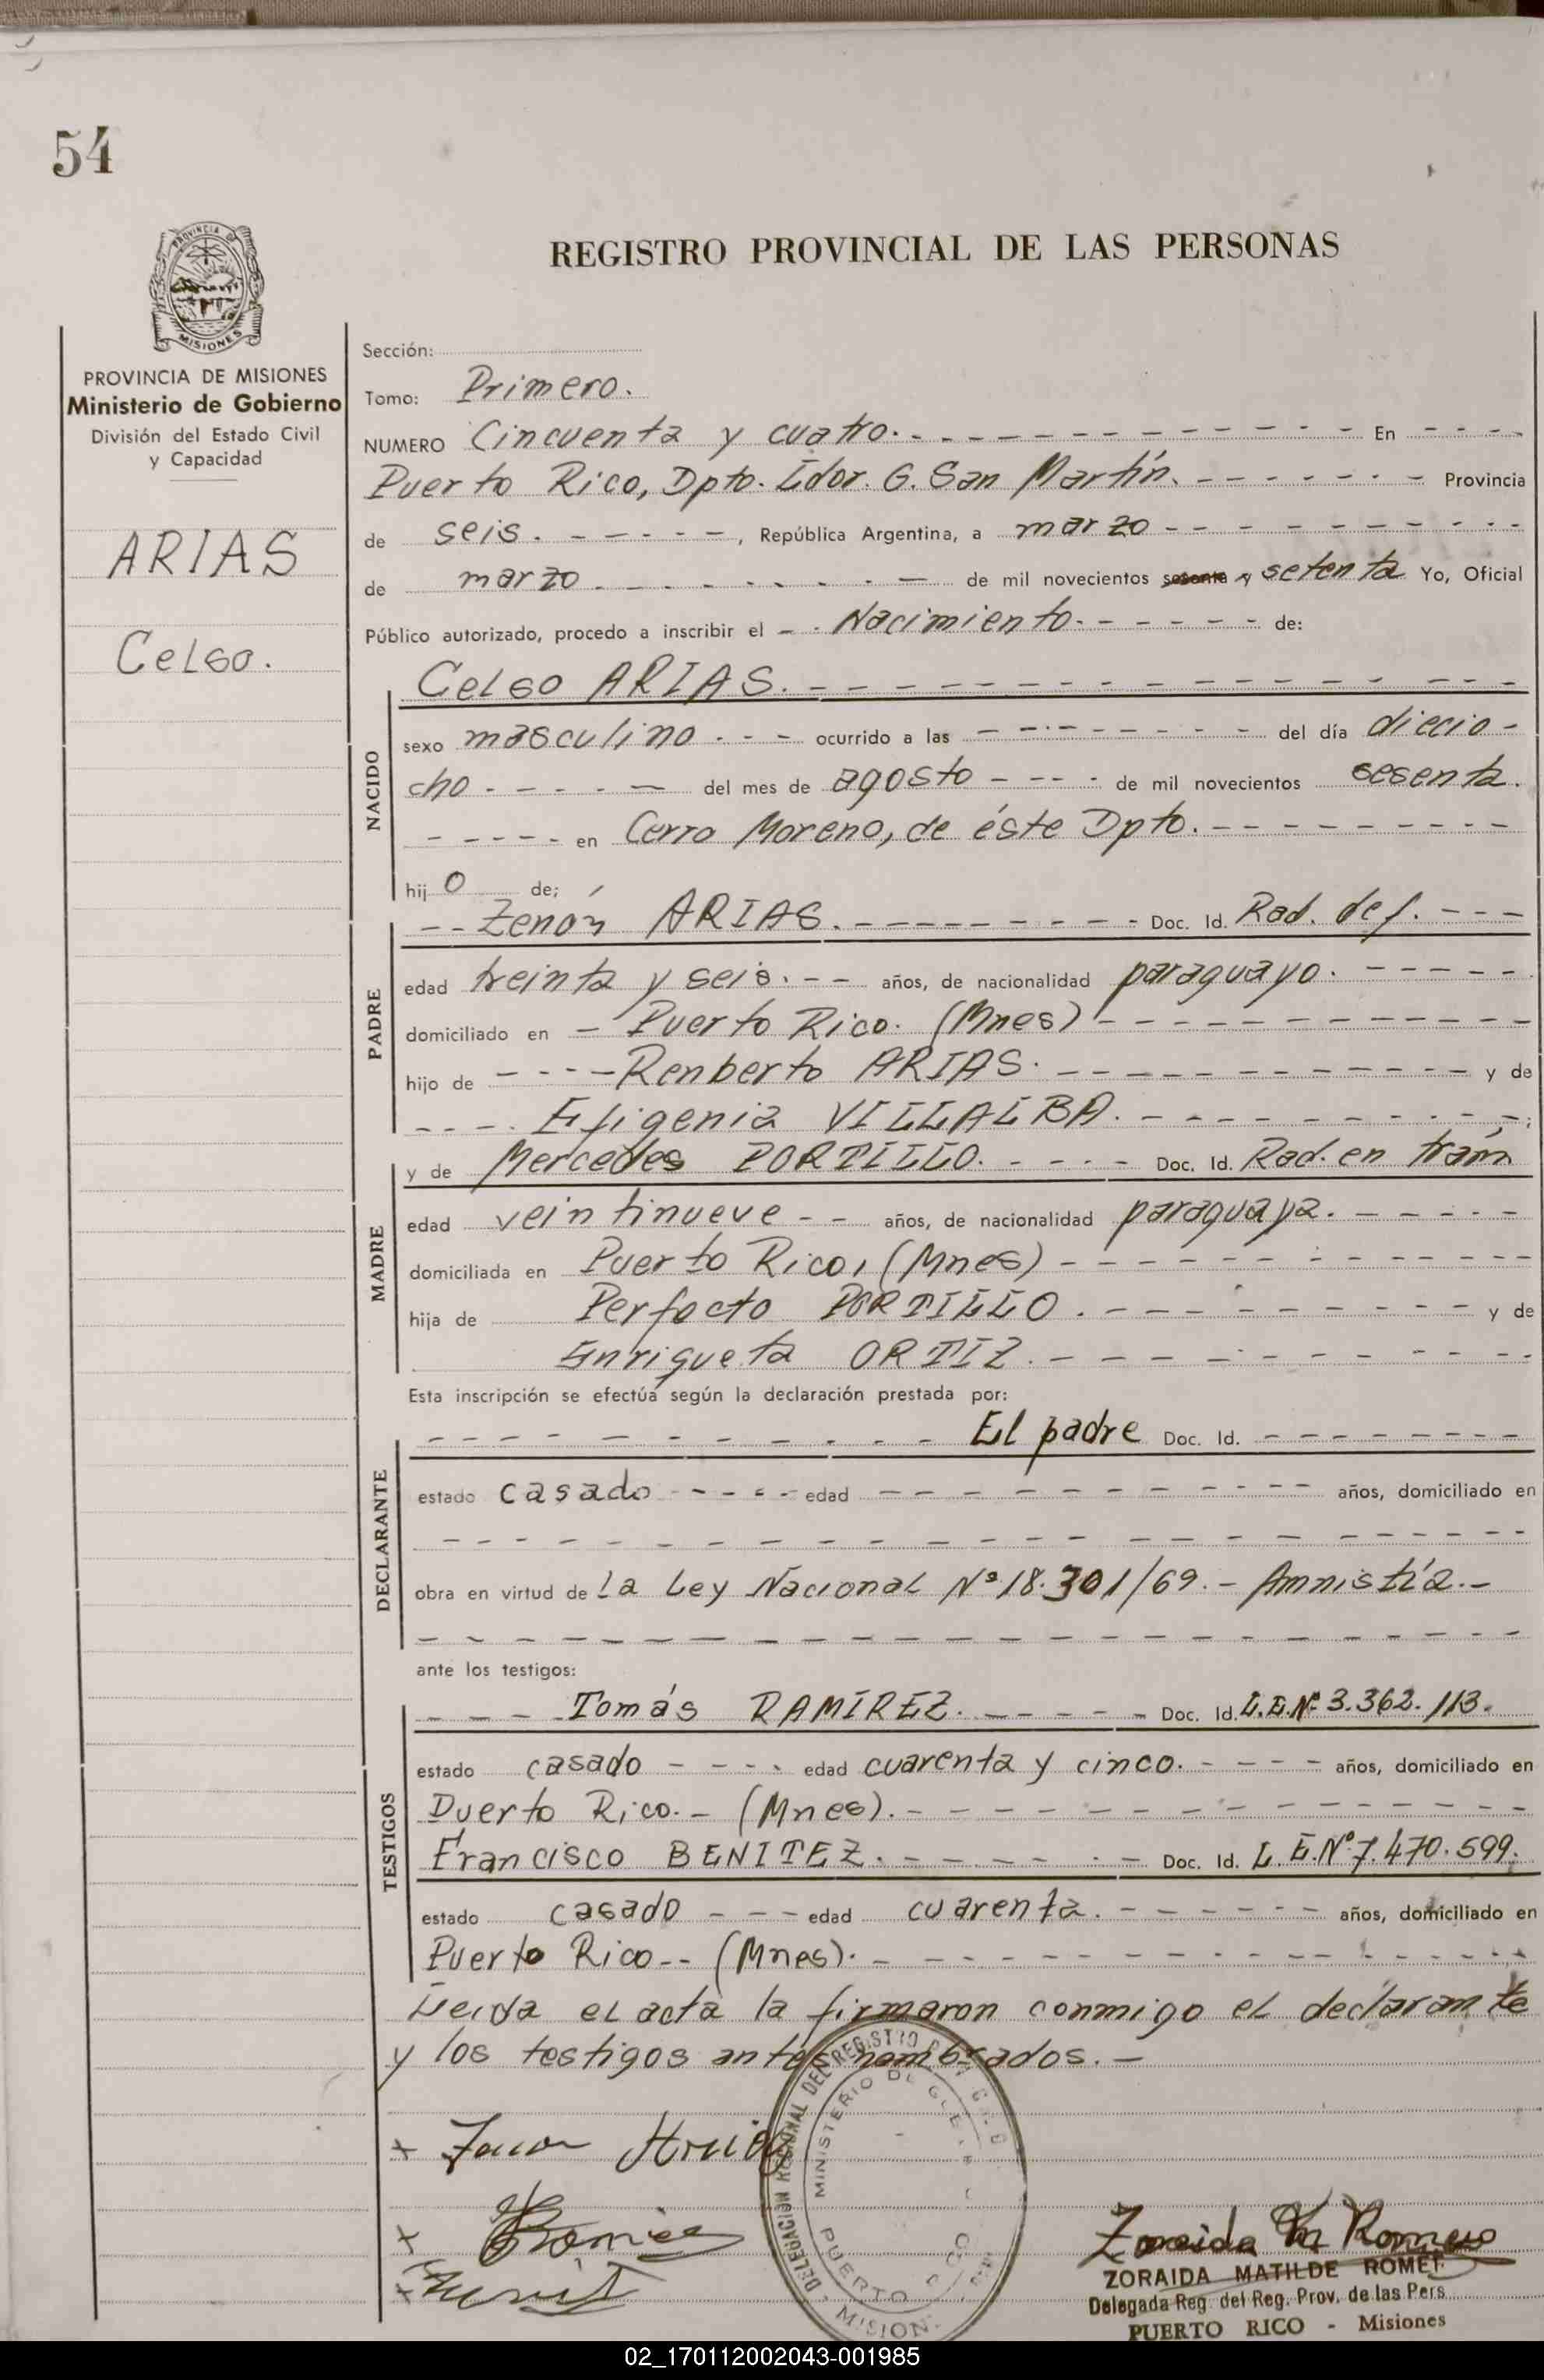 54
REGISTRO PROVINCIAL DE LAS PERSONAS
PROVINCIA DE MISIONES
Ministerio de Gobierno
División del Estado Civil
y Capacidad
ARIAS
Celso.
Sección:
Tomo: Primero.
NUMERO Cincuenta y cuatro. En
Puerto Rico, Dpto. Ldor. G. San Martín. Provincia
de seis. , República Argentina, a marzo
de marzo de mil novecientos sesenta y setenta Yo, Oficial
Público autorizado, procedo a inscribir el Nacimiento. de:
Celso ARIAS.
NACIDO
sexo masculino ocurrido a las del día diecio-
cho del mes de agosto de mil novecientos sesenta.
en Cerro Moreno, de éste Dpto.
hij o de;
Zenón ARIAS. Doc. Id. Rad. def.
PADRE
edad treinta y seis. años, de nacionalidad paraguayo.
domiciliado en Puerto Rico. (Mnes)
hijo de Renberto ARIAS. y de
Efigenia VILLALBA. ;
y de Mercedes PORTILLO. Doc. Id. Rad. en trám
MADRE
edad veintinueve años, de nacionalidad paraguaya.
domiciliada en Puerto Rico, (Mnes)
hija de Perfecto PORTILLO. y de
Enriqueta ORTIZ.
Esta inscripción se efectúa según la declaración prestada por:
El padre Doc. Id.
DECLARANTE
estado casado edad años, domiciliado en
obra en virtud de la Ley Nacional Nº 18.301/69.- Amnistía.-
ante los testigos:
Tomás RAMIREZ. Doc. Id. L.E.Nº 3.362.113.
TESTIGOS
estado casado edad cuarenta y cinco. años, domiciliado en
Puerto Rico.- (Mnes).
Francisco BENITEZ. Doc. Id. L.E.Nº 7.470.599.
estado casado edad cuarenta. años, domiciliado en
Puerto Rico-- (Mnes).
Leida el acta la firmaron conmigo el declarante
y los testigos antes nombrados.-
DELEGACIÓN REGIONAL DEL REGISTRO
MINISTERIO DE
PUERTO RICO
Zoraida M Romero
ZORAIDA MATILDE ROMER
Delegada Reg. del Reg. Prov. de las Pers
PUERTO RICO - Misiones
02_170112002043-001985